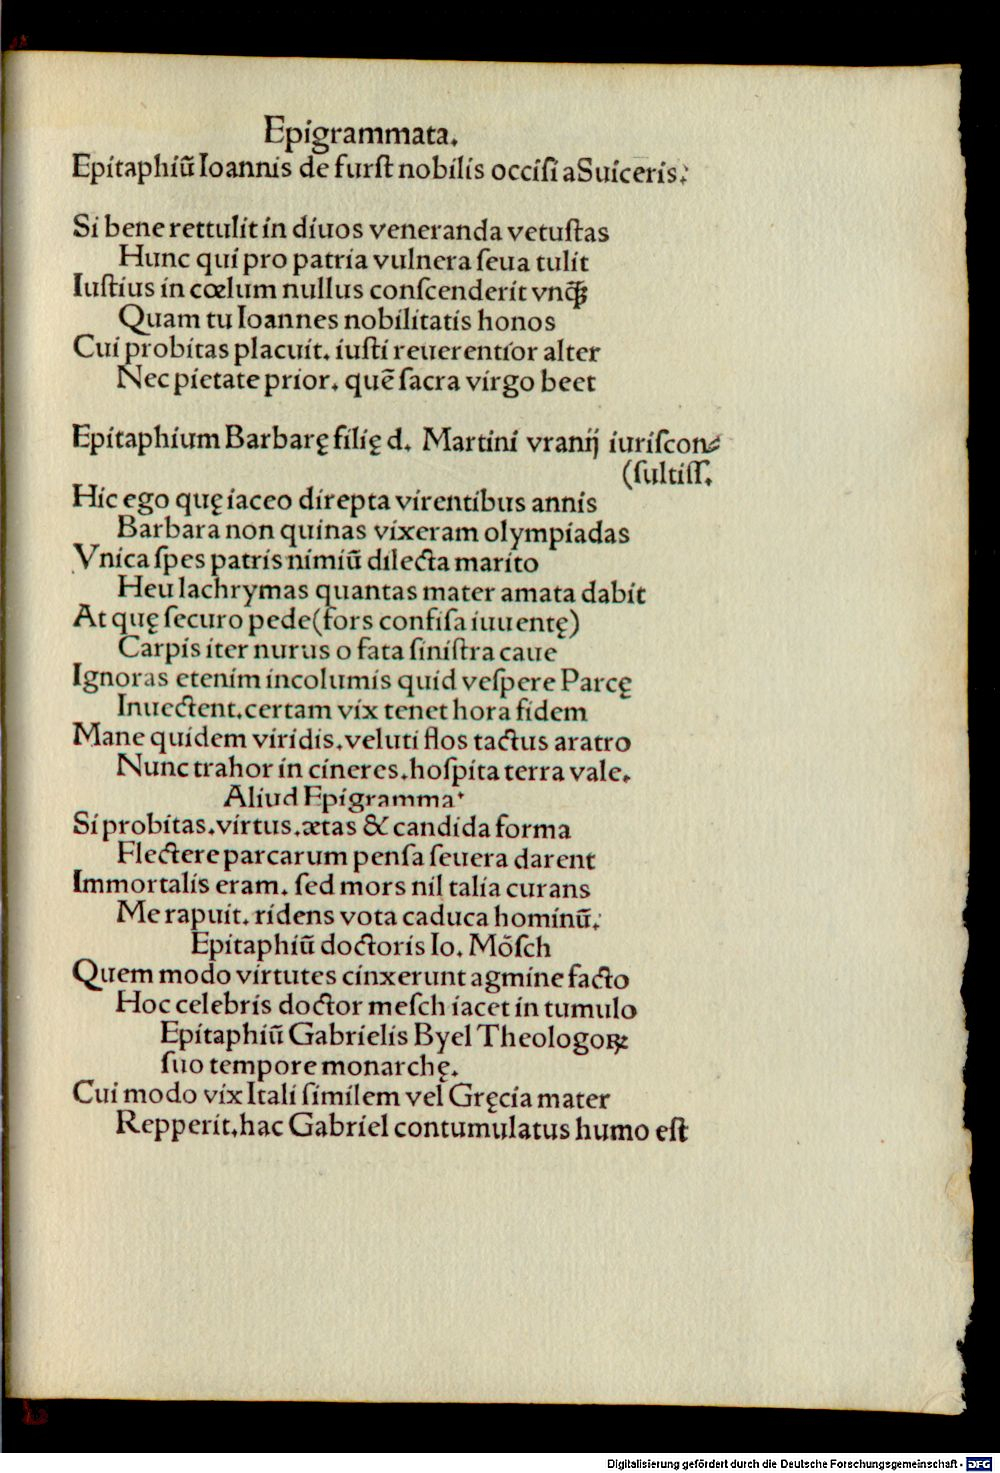 Epigrammata.
Epitaphiũ Ioannis de furſt nobilis occiſi a Suiceris.
Si bene rettulit in diuos veneranda vetuſtas
Hunc qui pro patria vulnera ſeua tulit
Iuſtius in cœlum nullus conſcenderit vnq̃ꝫ
Quam tu Ioannes nobilitatis honos
Cui probitas placuit. iuſti reuerentior alter
Nec pietate prior. quẽ ſacra virgo beet
Epitaphium Barbarę filię d. Martini vranij iuriſcon⸗
(ſultiſſ.
Hic ego quę iaceo direpta virentibus annis
Barbara non quinas vixeram olympiadas
Vnica ſpes patris nimiũ dilecta marito
Heu lachrymas quantas mater amata dabit
At quę ſecuro pede (fors confiſa iuuentę)
Carpis iter nurus o fata ſiniſtra caue
Ignoras etenim incolumis quid veſpere Parcę
Inuectent. certam vix tenet hora fidem
Mane quidem viridis. veluti flos tactus aratro
Nunc trahor in cineres. hoſpita terra vale.
Aliud Epigramma.
Si probitas. virtus. ætas & candida forma
Flectere parcarum penſa ſeuera darent
Immortalis eram. ſed mors nil talia curans
Me rapuit. ridens vota caduca hominũ.
Epitaphiũ doctoris Io. Mõſch
Quem modo virtutes cinxerunt agmine facto
Hoc celebris doctor meſch iacet in tumulo
Epitaphiũ Gabrielis Byel Theologoꝝ
ſuo tempore monarchę.
Cui modo vix Itali ſimilem vel Gręcia mater
Repperit. hac Gabriel contumulatus humo eſt
Digitalisierung gefördert durch die Deutsche Forschungsgemeinschaft - DFG